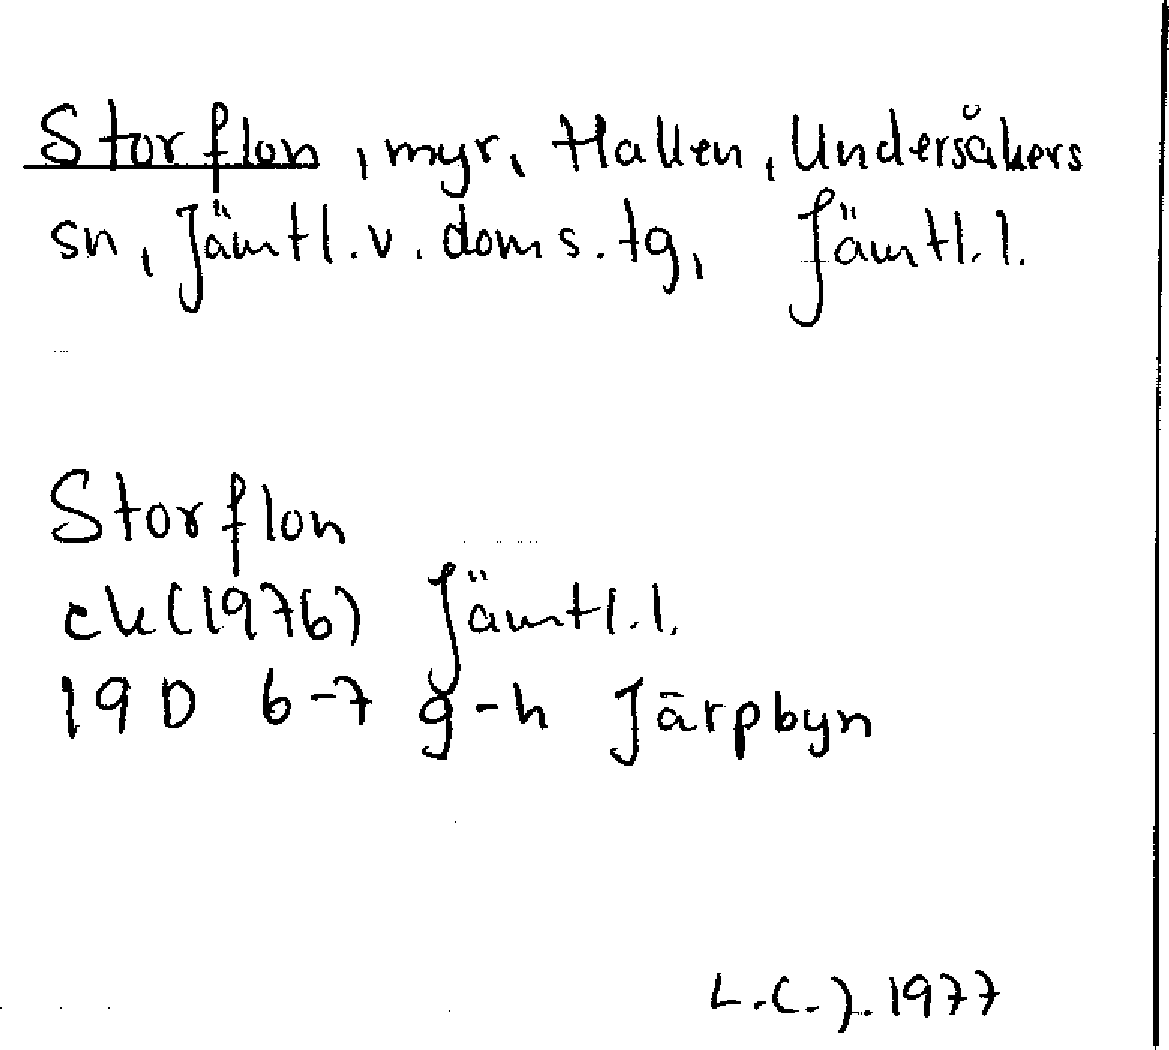 Storflon, myr, Hallen, Undersåkers
sn, Jämtl. v. doms. tg, Jämtl. l.
Storflon
ek (1976) Jämtl. l.
19 D 6-7 g-h Järpbyn
L.C.J. 1977